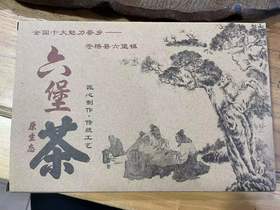 全国十大魅力茶乡——
苍梧县六堡镇
六堡茶
原生态
匠心制作·传统工艺